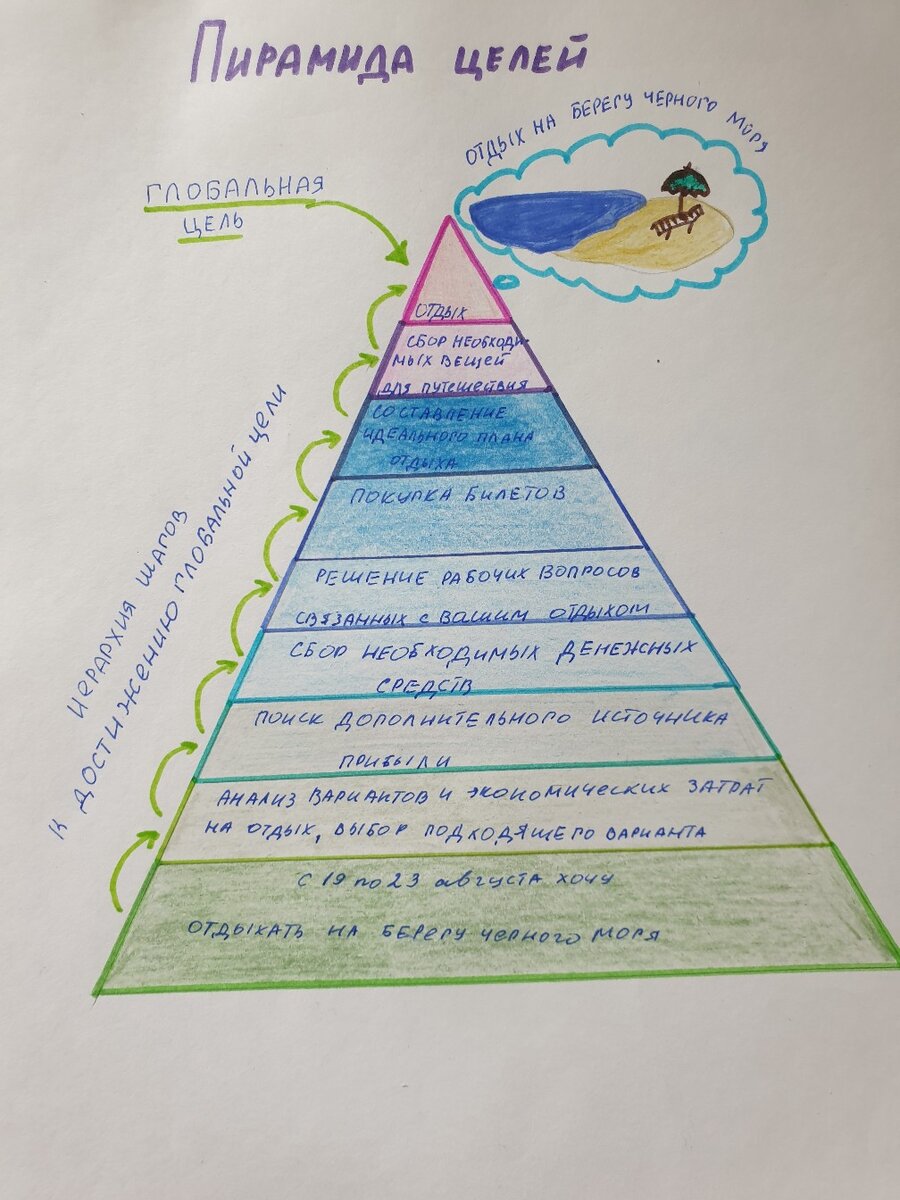 ПИРАМИДА ЦЕЛЕЙ
ОТДЫХ НА БЕРЕГУ ЧЕРНОГО МОРЯ
ГЛОБАЛЬНАЯ
ЦЕЛЬ
ОТДЫХ
СБОР НЕОБХОДИ-
МЫХ ВЕЩЕЙ
ДЛЯ ПУТЕШЕСТВИЯ
СОСТАВЛЕНИЕ
ИДЕАЛЬНОГО ПЛАНА
ОТДЫХА
ПОКУПКА БИЛЕТОВ
РЕШЕНИЕ РАБОЧИХ ВОПРОСОВ
СВЯЗАННЫХ С ВАШИМ ОТДЫХОМ
СБОР НЕОБХОДИМЫХ ДЕНЕЖНЫХ
СРЕДСТВ
ПОИСК ДОПОЛНИТЕЛЬНОГО ИСТОЧНИКА
ПРИБЫЛИ
АНАЛИЗ ВАРИАНТОВ И ЭКОНОМИЧЕСКИХ ЗАТРАТ
НА ОТДЫХ, ВЫБОР ПОДХОДЯЩЕГО ВАРИАНТА
С 19 по 23 августа хочу
ОТДЫХАТЬ НА БЕРЕГУ ЧЕРНОГО МОРЯ
ИЕРАРХИЯ ШАГОВ
К ДОСТИЖЕНИЮ ГЛОБАЛЬНОЙ ЦЕЛИ